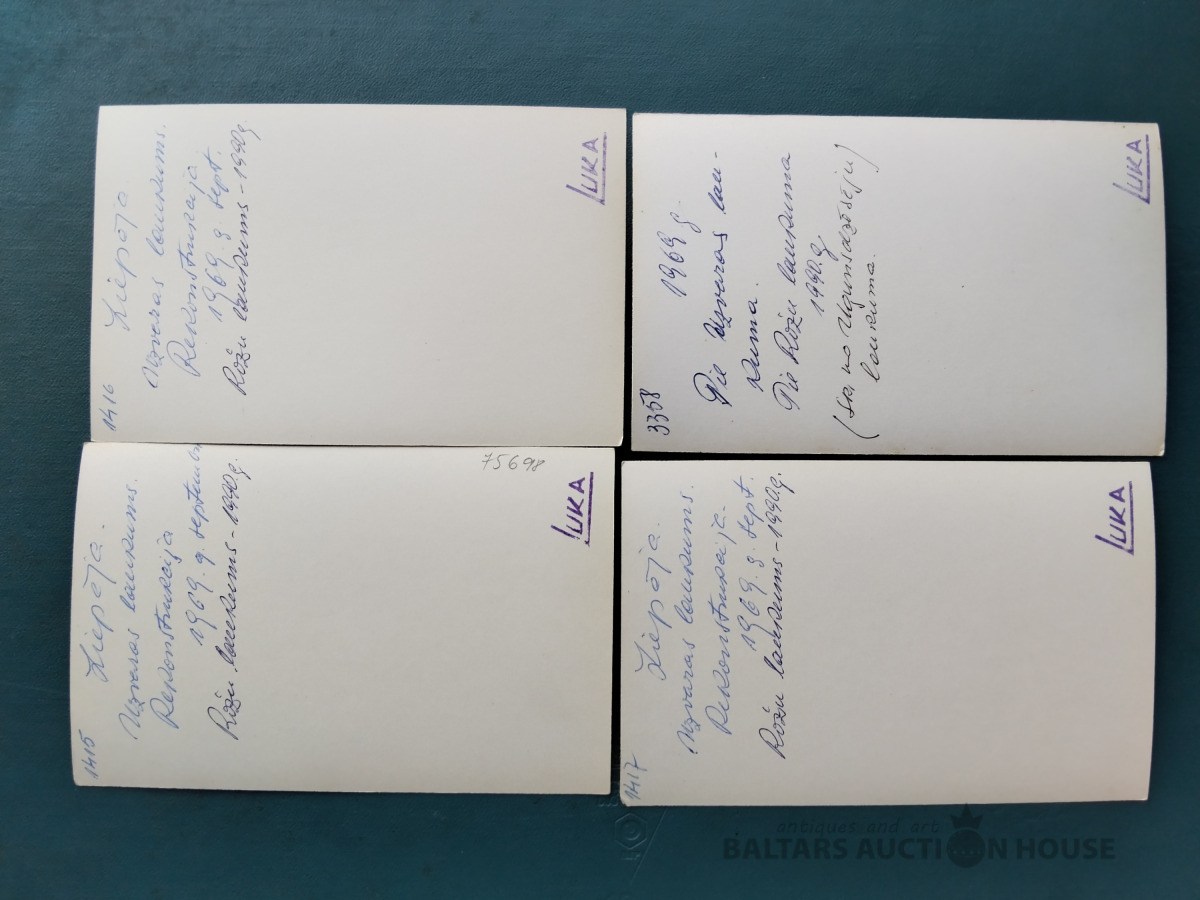 1416
Liepāja
Uzvaras laukums.
Rekonstrukcija
1969. g. sept.
Rožu laukums - 1990.g.
LUKA
3358
1969 g.
Pie Uzvaras lau-
kuma.
Pie Rožu laukuma
1990.g
(sk. no Ugunsdzēsēju)
laukuma.
LUKA
1415
Liepāja.
Uzvaras laukums.
Rekonstrukcija
1969. g. septembr
Rožu laukums - 1990.g.
75698
LUKA
1417
Liepāja.
Uzvaras laukums.
Rekonstrukcija.
1969. g. sept.
Rožu laukums - 1990.g.
LUKA
antiques and art
BALTARS AUCTION HOUSE